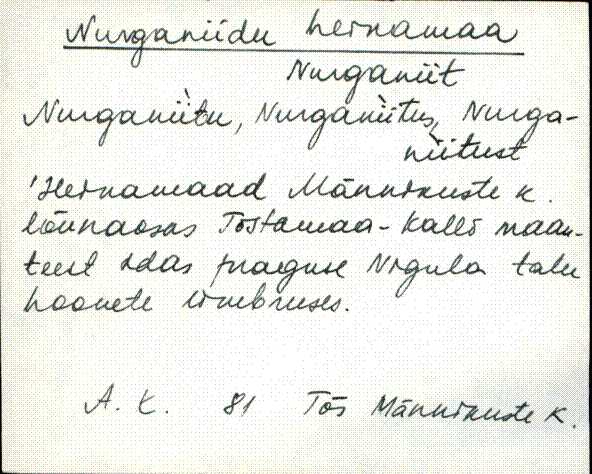 Nurganiidu heinamaa
Nurganiit
Nurganìitu, Nurganìitus, Nurga-
nìitust
'Heinamaad Männikuste k.
lõunaosas Tõstamaa-Kalli maan-
teest idas praeguse Nigula talu
hoonete ümbruses.
A. K. 81 Tõs Männikuste k.